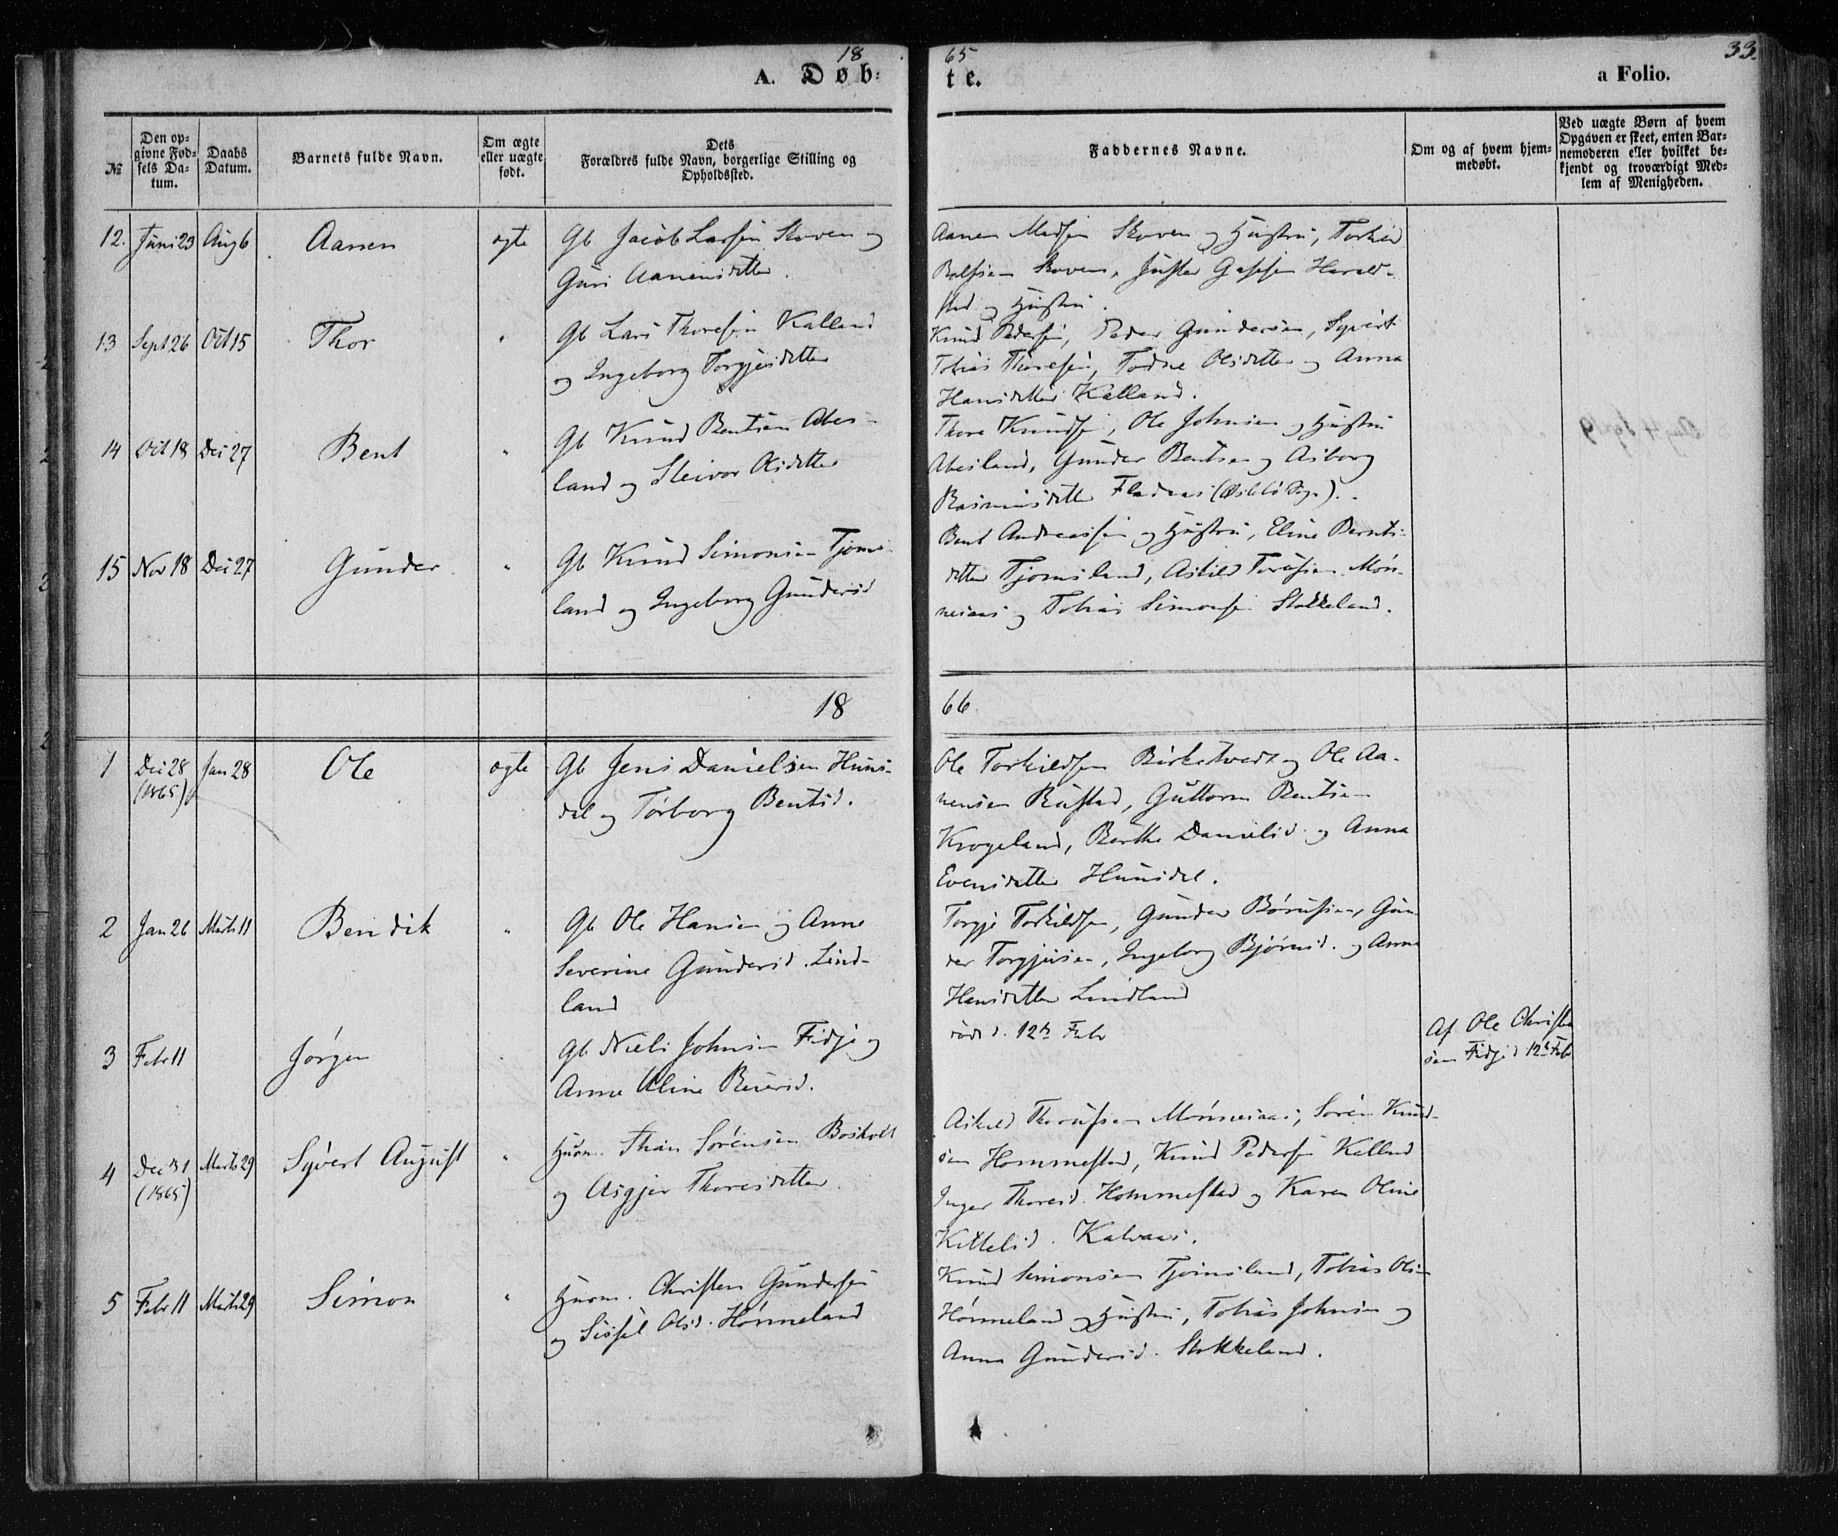 18 65 33.
A. Døb: te. a Folio.
№
Den op-
givne Fød-
sels Da-
tum.
Daabs
Datum.
Barnets fulde Navn.
Om ægte
eller uægte
født.
Dets
Forældres fulde Navn, borgerlige Stilling og
Opholdssted.
Faddernes Navne.
Om og af hvem hjem-
medøbt.
Ved uægte Børn af hvem
Opgaven er skeet, enten Bar-
nemoderen eller hvilket be-
kjendt og troværdigt Med-
lem af Menigheden.
12. Juni 23 Aug 6 Aanen ægte Gb Jacob Larsen Skoven og
Guri Aanensdatter.
Aanen Madsen Skoven og Hustru,
Skoven, Harald-
stad og Hustru.
13 Sept 26 Oct 15 Thor " Gb Lars Thoresen Kalland
og Ingeborg Torgjusdatter
Knud Pedersen, Peder Gundersen, Syvert
Tobias Thoresen, Todne Olsdatter og Anna
Hansdatter Kalland.
14 Oct 18 Dec 27 Bent " Gb Knud Bentsen Abes-
land og Steivor Olsdatter
Thore Knudsen, Ole Johnsen og Hustru
Abesland, Gunder Bentsen og Asborg
Rasmusdatter
15 Nov 18 Dec 27 Gunder " Gb Knud Simonsen Tjoms-
land og Ingeborg Gundersd
Bent Andreassen og Hustru, Eline Bernts-
datter Tjomsland, Askild Møn-
nesaas og Tobias Simonsen Stokkeland.
18 66
1 Dec 28
(1865) Jan 28 Ole ægte Gb Jens Danielsen Huns-
dal og Torborg Bentsd.
Ole Torkildsen Birketvedt og Ole Aa-
nensen Rustad, Guttorm Bentsen
Krogeland, Berthe Danielsd. og Anna
Evensdatter Hunsdal.
2 Jan 26 Marts 11 Bendik " Gb Ole Hansen og Anne
Severine Gundersd. Lind-
land
Torgje Torkildsen, Gunder Gun-
der Torgjusen, Ingeborg Bjørnsd. og Anna
Hansdatter Lindland
3 Febr 11 Jørgen Gb Niels Johnsen Fidje og
Anne Aline
død d. 12te Febr
Af Ole Christen-
sen Fidje d 12te Febr
4 Dec 31
(1865) Marts 29 Syvert August " Husm. Sørensen Bosholt
og Asgjer Thoresdatter.
Askild Mønnesaas, Søren Knud-
sen Hommestad, Knud Pedersen Kalland
Inger Thoresd. Hommestad og Karen Oline
Kittelsd. Kalvaas.
5 Febr 11 Marts 29 Simon " Husm. Christen Gundersen
og Sissel Olsd. Hønneland
Knud Simonsen Tjomsland, Tobias Olsen
Hønneland og Hustru, Tobias Johnsen og
Anna Gundersd. Stokkeland.